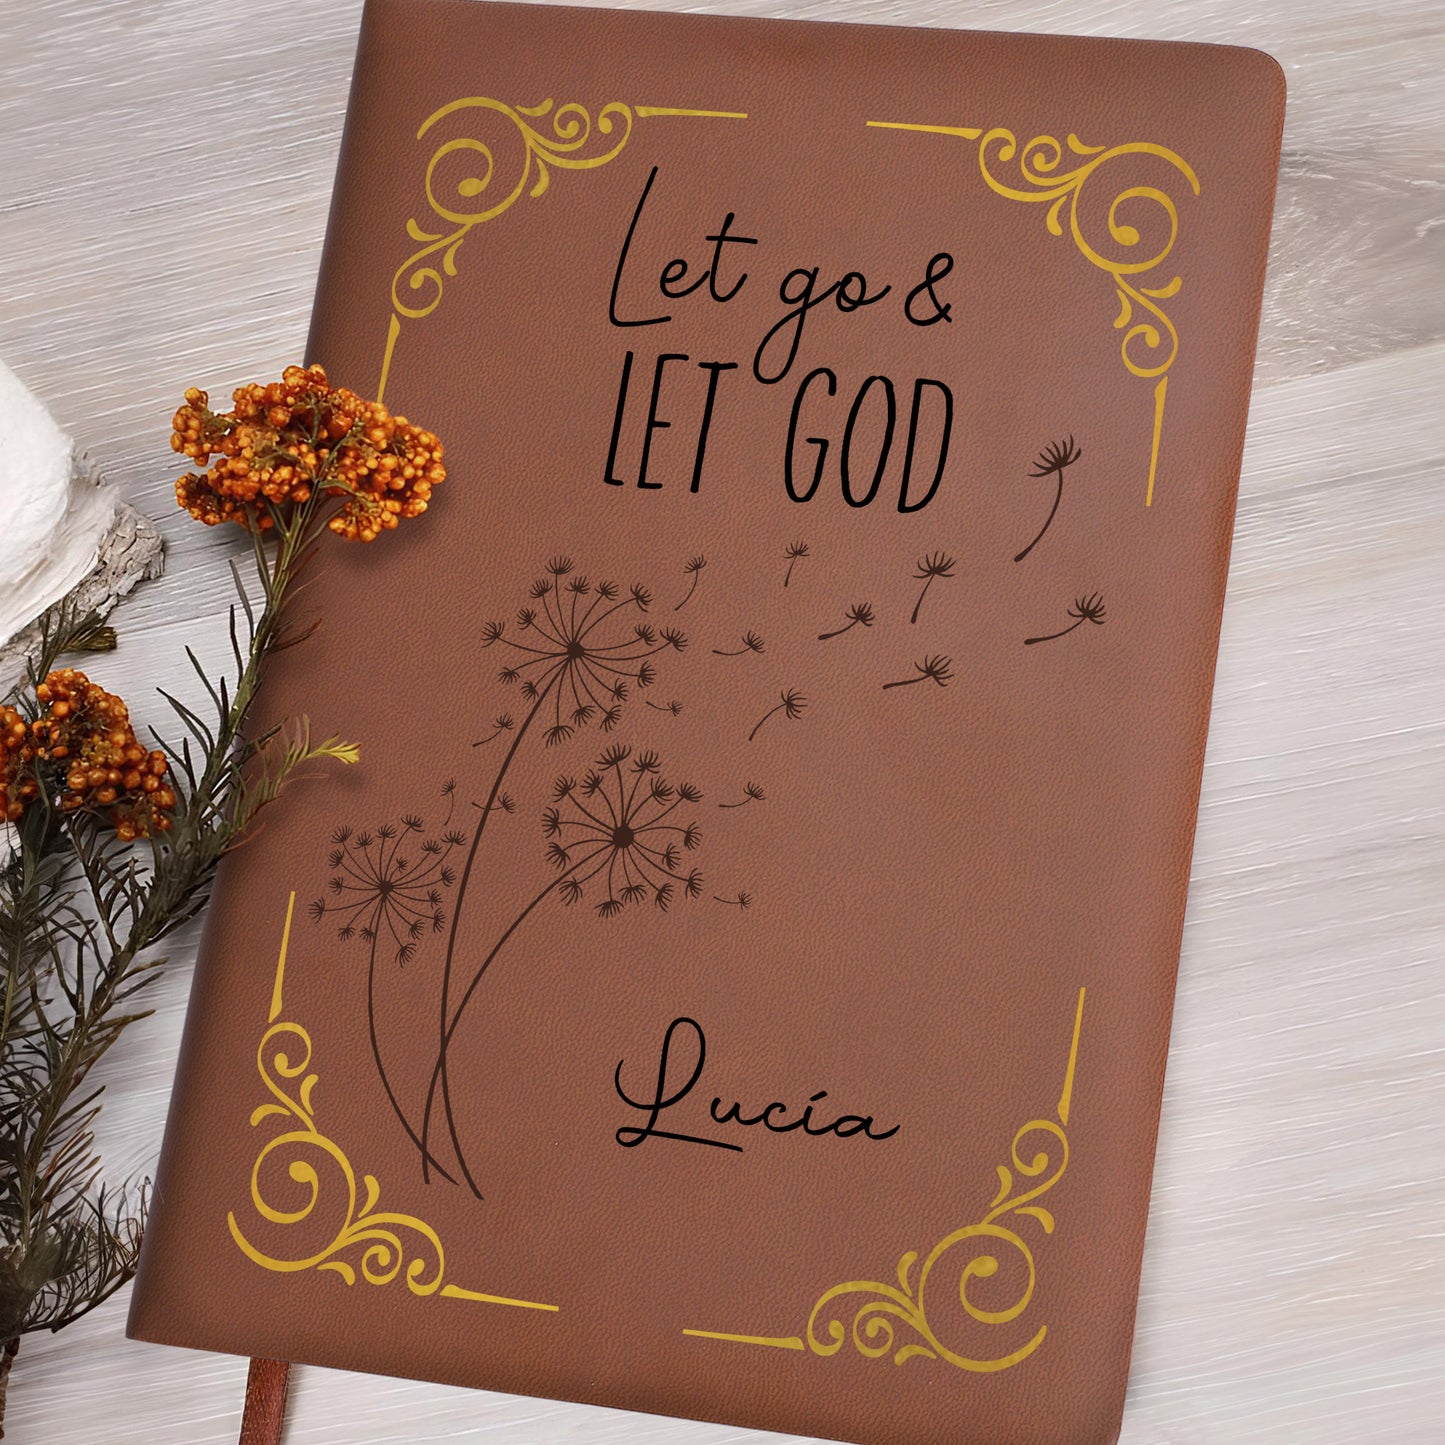 Let go &
LET GOD
Lucía